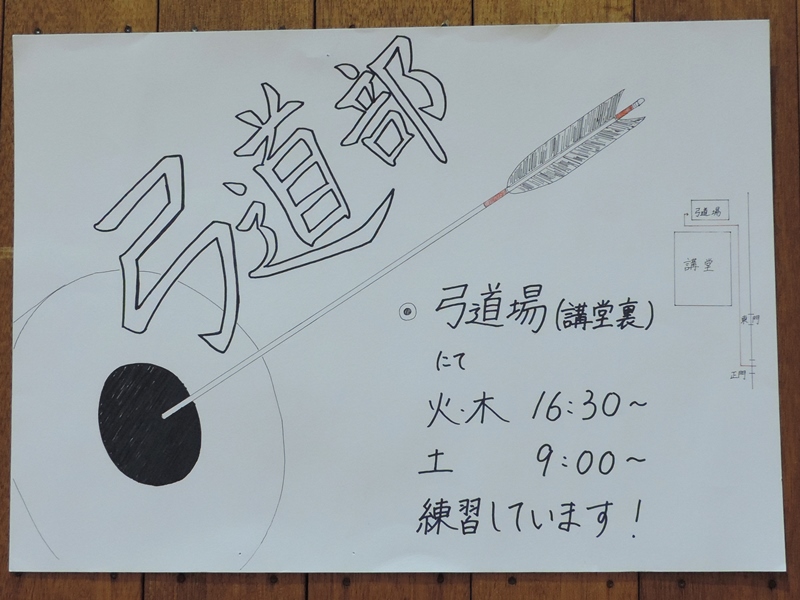 弓道部
弓道場(講堂裏)
にて
火・木 16:30~
土 9:00~
練習しています!
弓道場
講堂
東門
正門